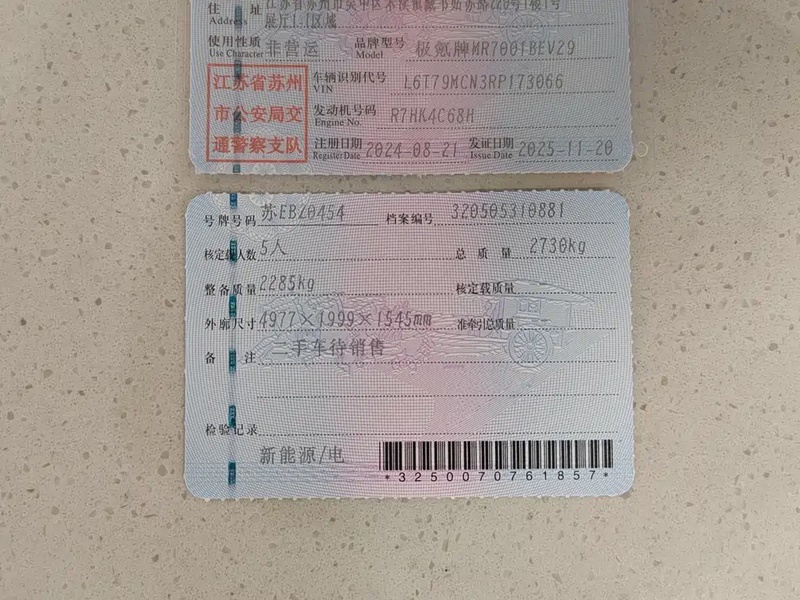 住 址 江苏省苏州市吴中区木渎镇
Address 展厅1.1区域
使用性质 非营运 品牌型号 极氪牌MR7001BEV29
Use Character Model
江苏省苏州
市公安局交
通警察支队
车辆识别代号 L6T79MCN3RP173066
VIN
发动机号码 R7HK4C68H
Engine No.
注册日期 2024-08-21 发证日期 2025-11-20
Register Date Issue Date
号牌号码 苏EBZ0454 档案编号 320505310881
核定载人数 5人 总质量 2730kg
整备质量 2285kg 核定载质量
外廓尺寸 4977×1999×1545mm 准牵引总质量
备 注 二手车待销售
检验记录
新能源/电
*3250070761857*